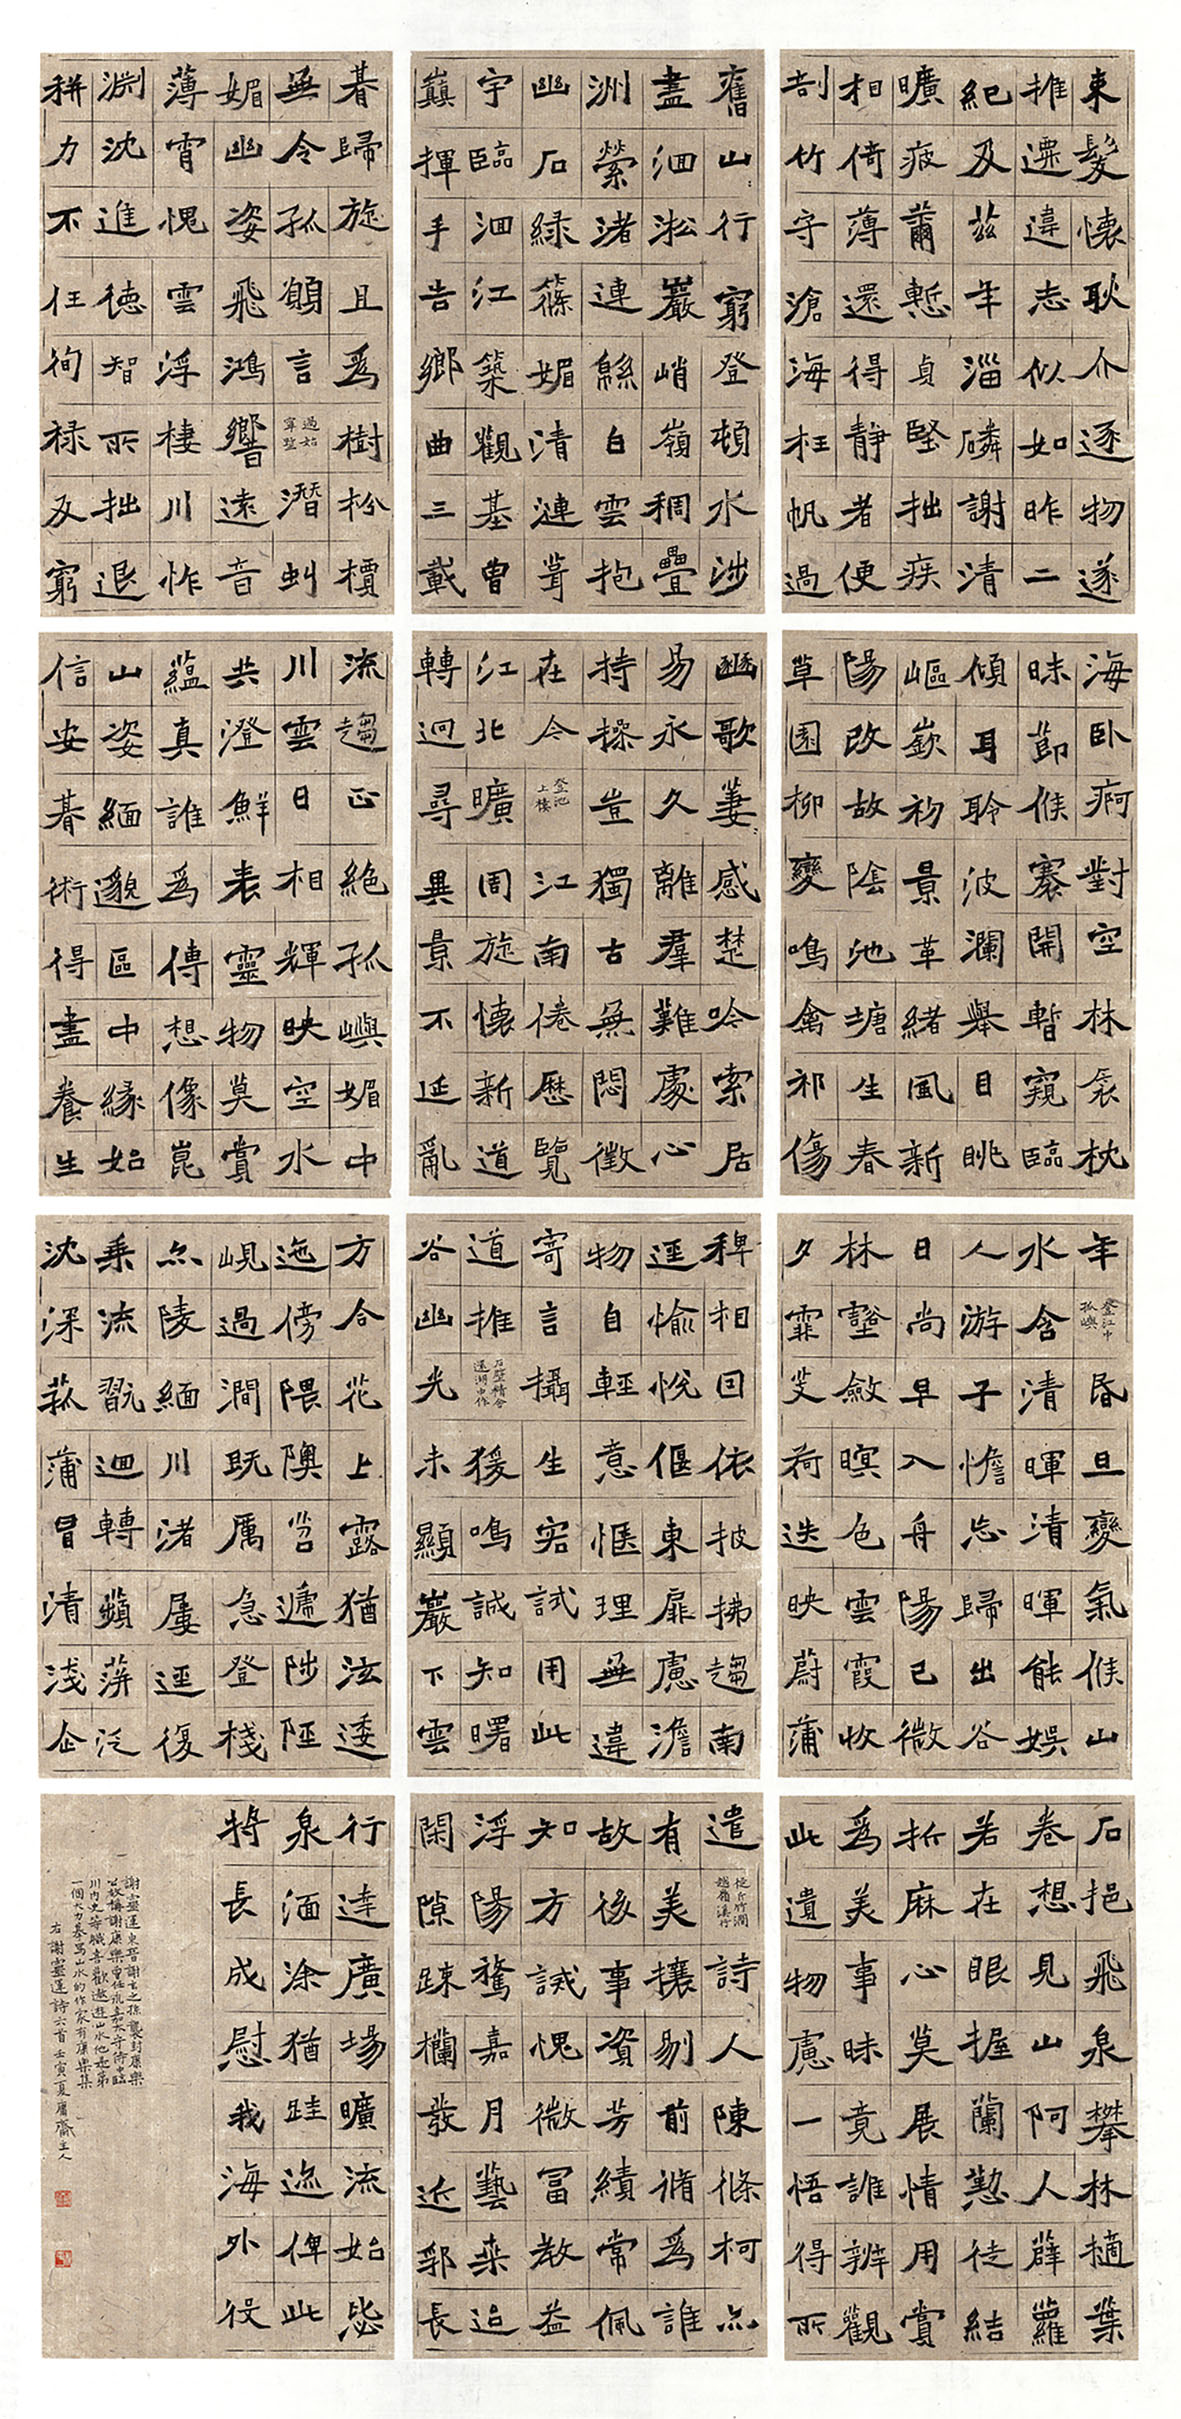 束髮懷耿介逐物遂
推遷違志似如昨二
紀及茲年淄磷謝清
曠疲薾慙貞堅拙疾
相倚薄還得靜者便
剖竹守滄海枉帆過
舊山行窮登頓水涉
盡洄淞巖峭嶺稠疊
洲縈渚連緜白雲抱
幽石綠篠媚清漣葺
宇臨洄江築觀基曾
巔揮手告鄉曲三載
朞歸旋且爲樹枌檟
無令孤願言過始寧墅潛虯
媚幽姿飛鴻響遠音
薄霄愧雲浮棲川怍
淵沈進德智所拙退
耕力不任徇祿及窮
海臥痾對空林衾枕
昧節候褰開暫窺臨
傾耳聆波瀾舉目眺
嶇嶔初景革緒風新
陽改故陰池塘生春
草園柳變鳴禽祁傷
豳歌萋感楚吟索居
易永久離羣難處心
持操豈獨古無悶徵
在今登池上樓江南倦歷覽
江北曠周旋懷新道
轉迥尋異景不延亂
流趨正絕孤嶼媚中
川雲日相輝映空水
共澄鮮表靈物莫賞
蘊真誰爲傳想像崑
山姿緬邈區中緣始
信安朞術得盡養生
年登江中孤嶼昏旦變氣候山
水含清暉清暉能娛
人游子憺忘歸出谷
日尚早入舟陽已微
林壑斂暝色雲霞收
夕霏芰荷迭映蔚蒲
稗相因依披拂趨南
逕愉悅偃東扉慮澹
物自輕意愜理無違
寄言攝生客試用此
道推石壁精舍還湖中作猨鳴誠知曙
谷幽光未顯巖下雲
方合花上露猶泫逶
迤傍隈隩苕遞陟陘
峴過澗既厲急登棧
亦陵緬川渚屢逕復
乘流翫迴轉蘋萍泛
沈深菰蒲冒清淺企
石挹飛泉攀林擿葉
卷想見山阿人薜蘿
若在眼握蘭懃徒結
折麻心莫展情用賞
爲美事昧竟誰辨觀
此遺物慮一悟得所
遣從斤竹澗越嶺溪行詩人陳條柯亦
有美攘剔前脩爲誰
故後事資芳績常佩
知方誡愧微富教益
浮陽鶩嘉月藝桑迨
閑隙疎欄發近郛長
行達廣場曠流始毖
泉湎涂猶跬迹俾此
將長成慰我海外役
謝靈運東晉謝玄之孫襲封康樂
公故稱謝康樂曾任永嘉太守侍中臨
川內史等職喜歡遨遊山水他是第
一個大力摹寫山水的作家有康樂集
右謝靈運詩六首壬寅夏庸齋主人